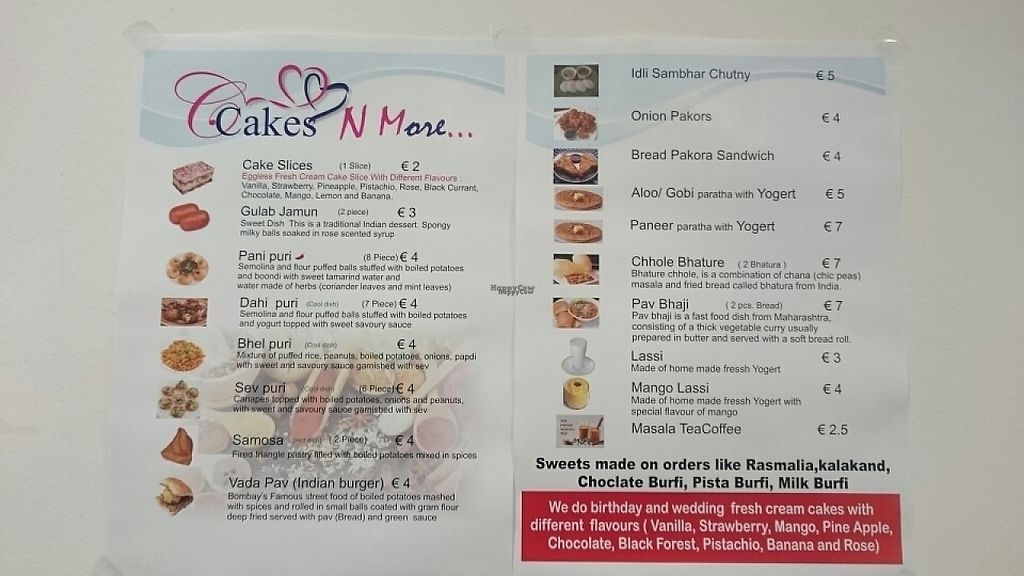 Cakes N More...
Cake Slices (1 Slice) € 2
Eggless Fresh Cream Cake Slice With Different Flavours :
Vanilla, Strawberry, Pineapple, Pistachio, Rose, Black Currant,
Chocolate, Mango, Lemon and Banana.
Gulab Jamun (2 piece) € 3
Sweet Dish This is a traditional Indian dessert. Spongy
milky balls soaked in rose scented syrup
Pani puri (8 Piece) € 4
Semolina and flour puffed balls stuffed with boiled potatoes
and boondi with sweet tamarind water and
water made of herbs (coriander leaves and mint leaves)
Dahi puri (Cool dish) (7 Piece) € 4
Semolina and flour puffed balls stuffed with boiled potatoes
and yogurt topped with sweet savoury sauce
Bhel puri (Cool dish) € 4
Mixture of puffed rice, peanuts, boiled potatoes, onions, papdi
with sweet and savoury sauce garnished with sev
Sev puri (Cool dish) (6 Piece) € 4
Canapes topped with boiled potatoes, onions and peanuts,
with sweet and savoury sauce garnished with sev
Samosa (Hot dish) ( 2 Piece) € 4
Fired triangle pastry filled with boiled potatoes mixed in spices
Vada Pav (Indian burger) € 4
Bombay's Famous street food of boiled potatoes mashed
with spices and rolled in small balls coated with gram flour
deep fried served with pav (Bread) and green sauce
Idli Sambhar Chutny € 5
Onion Pakors € 4
Bread Pakora Sandwich € 4
Aloo/ Gobi paratha with Yogert € 5
Paneer paratha with Yogert € 7
Chhole Bhature ( 2 Bhatura ) € 7
Bhature chhole, is a combination of chana (chic peas)
masala and fried bread called bhatura from India.
Pav Bhaji ( 2 pcs. Bread) € 7
Pav bhaji is a fast food dish from Maharashtra,
consisting of a thick vegetable curry usually
prepared in butter and served with a soft bread roll.
Lassi € 3
Made of home made fressh Yogert
Mango Lassi € 4
Made of home made fressh Yogert with
special flavour of mango
Masala TeaCoffee € 2.5
Sweets made on orders like Rasmalia,kalakand,
Choclate Burfi, Pista Burfi, Milk Burfi
We do birthday and wedding fresh cream cakes with
different flavours ( Vanilla, Strawberry, Mango, Pine Apple,
Chocolate, Black Forest, Pistachio, Banana and Rose)
HappyCow
HappyCow